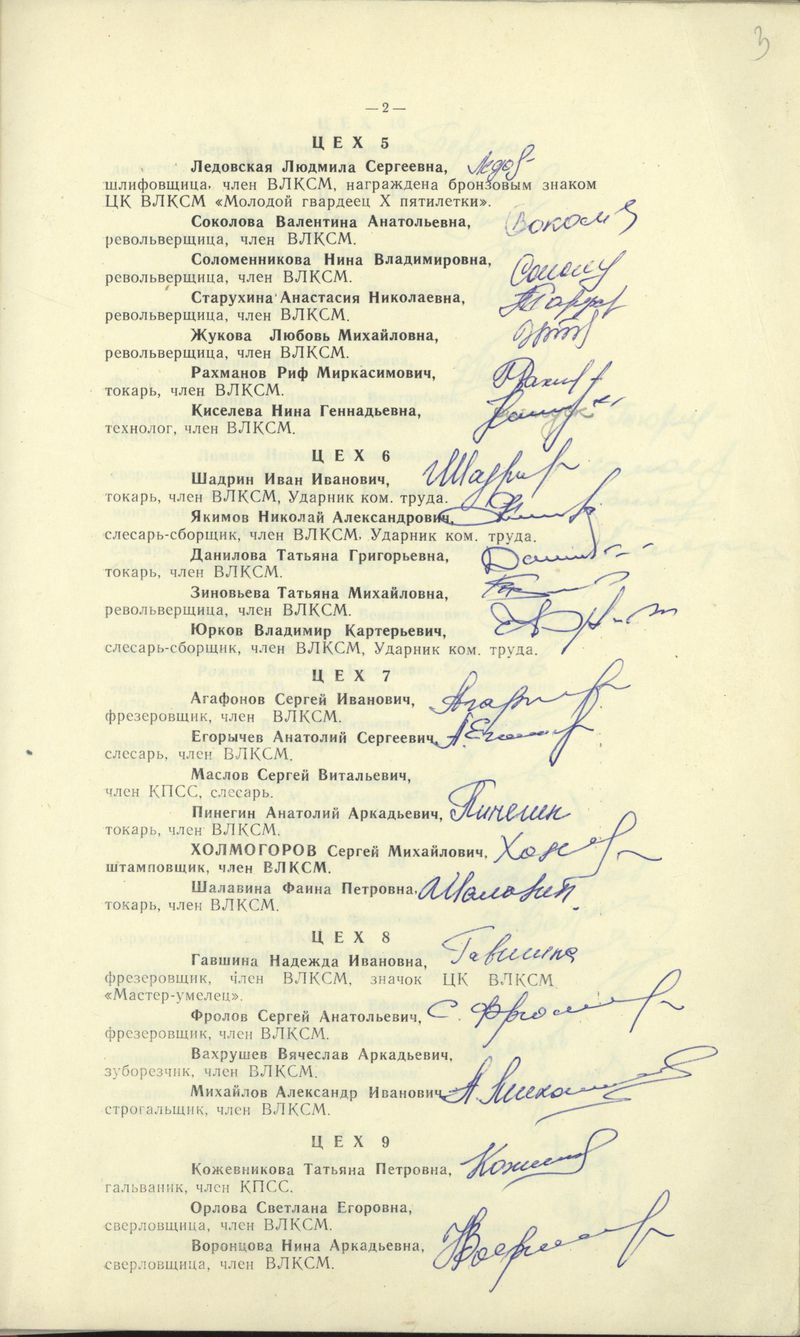 3
— 2 —
ЦЕХ 5
Ледовская Людмила Сергеевна,
шлифовщица, член ВЛКСМ, награждена бронзовым знаком
ЦК ВЛКСМ «Молодой гвардеец X пятилетки».
Соколова Валентина Анатольевна,
револьверщица, член ВЛКСМ.
Соломенникова Нина Владимировна,
револьверщица, член ВЛКСМ.
Старухина Анастасия Николаевна,
револьверщица, член ВЛКСМ.
Жукова Любовь Михайловна,
револьверщица, член ВЛКСМ.
Рахманов Риф Миркасимович,
токарь, член ВЛКСМ.
Киселева Нина Геннадьевна,
технолог, член ВЛКСМ.
ЦЕХ 6
Шадрин Иван Иванович,
токарь, член ВЛКСМ, Ударник ком. труда.
Якимов Николай Александрович,
слесарь-сборщик, член ВЛКСМ, Ударник ком. труда.
Данилова Татьяна Григорьевна,
токарь, член ВЛКСМ.
Зиновьева Татьяна Михайловна,
револьверщица, член ВЛКСМ.
Юрков Владимир Картерьевич,
слесарь-сборщик, член ВЛКСМ, Ударник ком. труда.
ЦЕХ 7
Агафонов Сергей Иванович,
фрезеровщик, член ВЛКСМ.
Егорычев Анатолий Сергеевич,
слесарь, член ВЛКСМ.
Маслов Сергей Витальевич,
член КПСС, слесарь.
Пинегин Анатолий Аркадьевич, Пинегин
токарь, член ВЛКСМ.
ХОЛМОГОРОВ Сергей Михайлович,
штамповщик, член ВЛКСМ.
Шалавина Фаина Петровна,
токарь, член ВЛКСМ.
ЦЕХ 8
Гавшина Надежда Ивановна, Гавшина
фрезеровщик, член ВЛКСМ, значок ЦК ВЛКСМ
«Мастер-умелец».
Фролов Сергей Анатольевич,
фрезеровщик, член ВЛКСМ.
Вахрушев Вячеслав Аркадьевич,
зуборезчик, член ВЛКСМ.
Михайлов Александр Иванович,
строгальщик, член ВЛКСМ.
ЦЕХ 9
Кожевникова Татьяна Петровна,
гальваник, член КПСС.
Орлова Светлана Егоровна,
сверловщица, член ВЛКСМ.
Воронцова Нина Аркадьевна,
сверловщица, член ВЛКСМ.